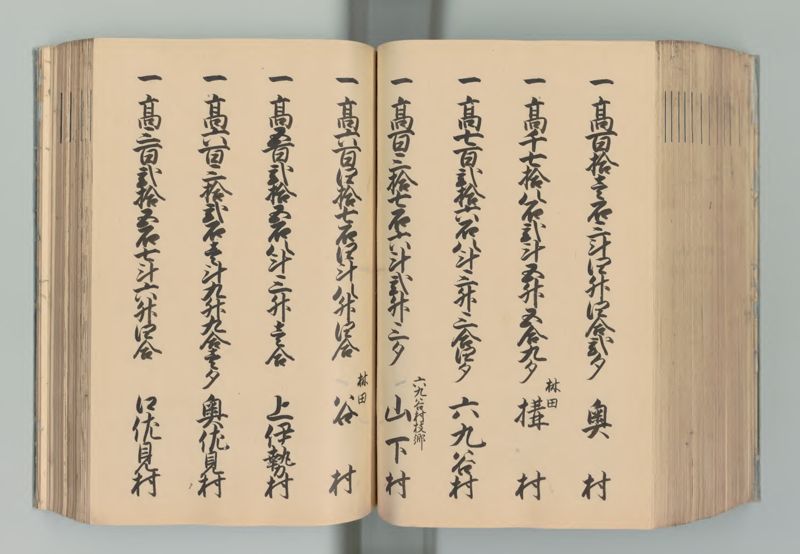 一 高百拾壱石三斗四升四合弐夕 奥 村
一 高千七拾八石弐斗五升五合九夕 林田 構 村
一 高七百弐拾六石八斗三升三合四夕 六九谷村
一 高百三拾七石六斗弐升三夕 六九谷村枝郷 山下村
一 高六百四拾七石四斗八升四合 林田 谷 村
一 高五百弐拾五石八斗三升壱合 上伊勢村
一 高六百三拾弐石壱斗九升九合壱夕 奥佐見村
一 高三百弐拾五石七斗六升四合 口佐見村